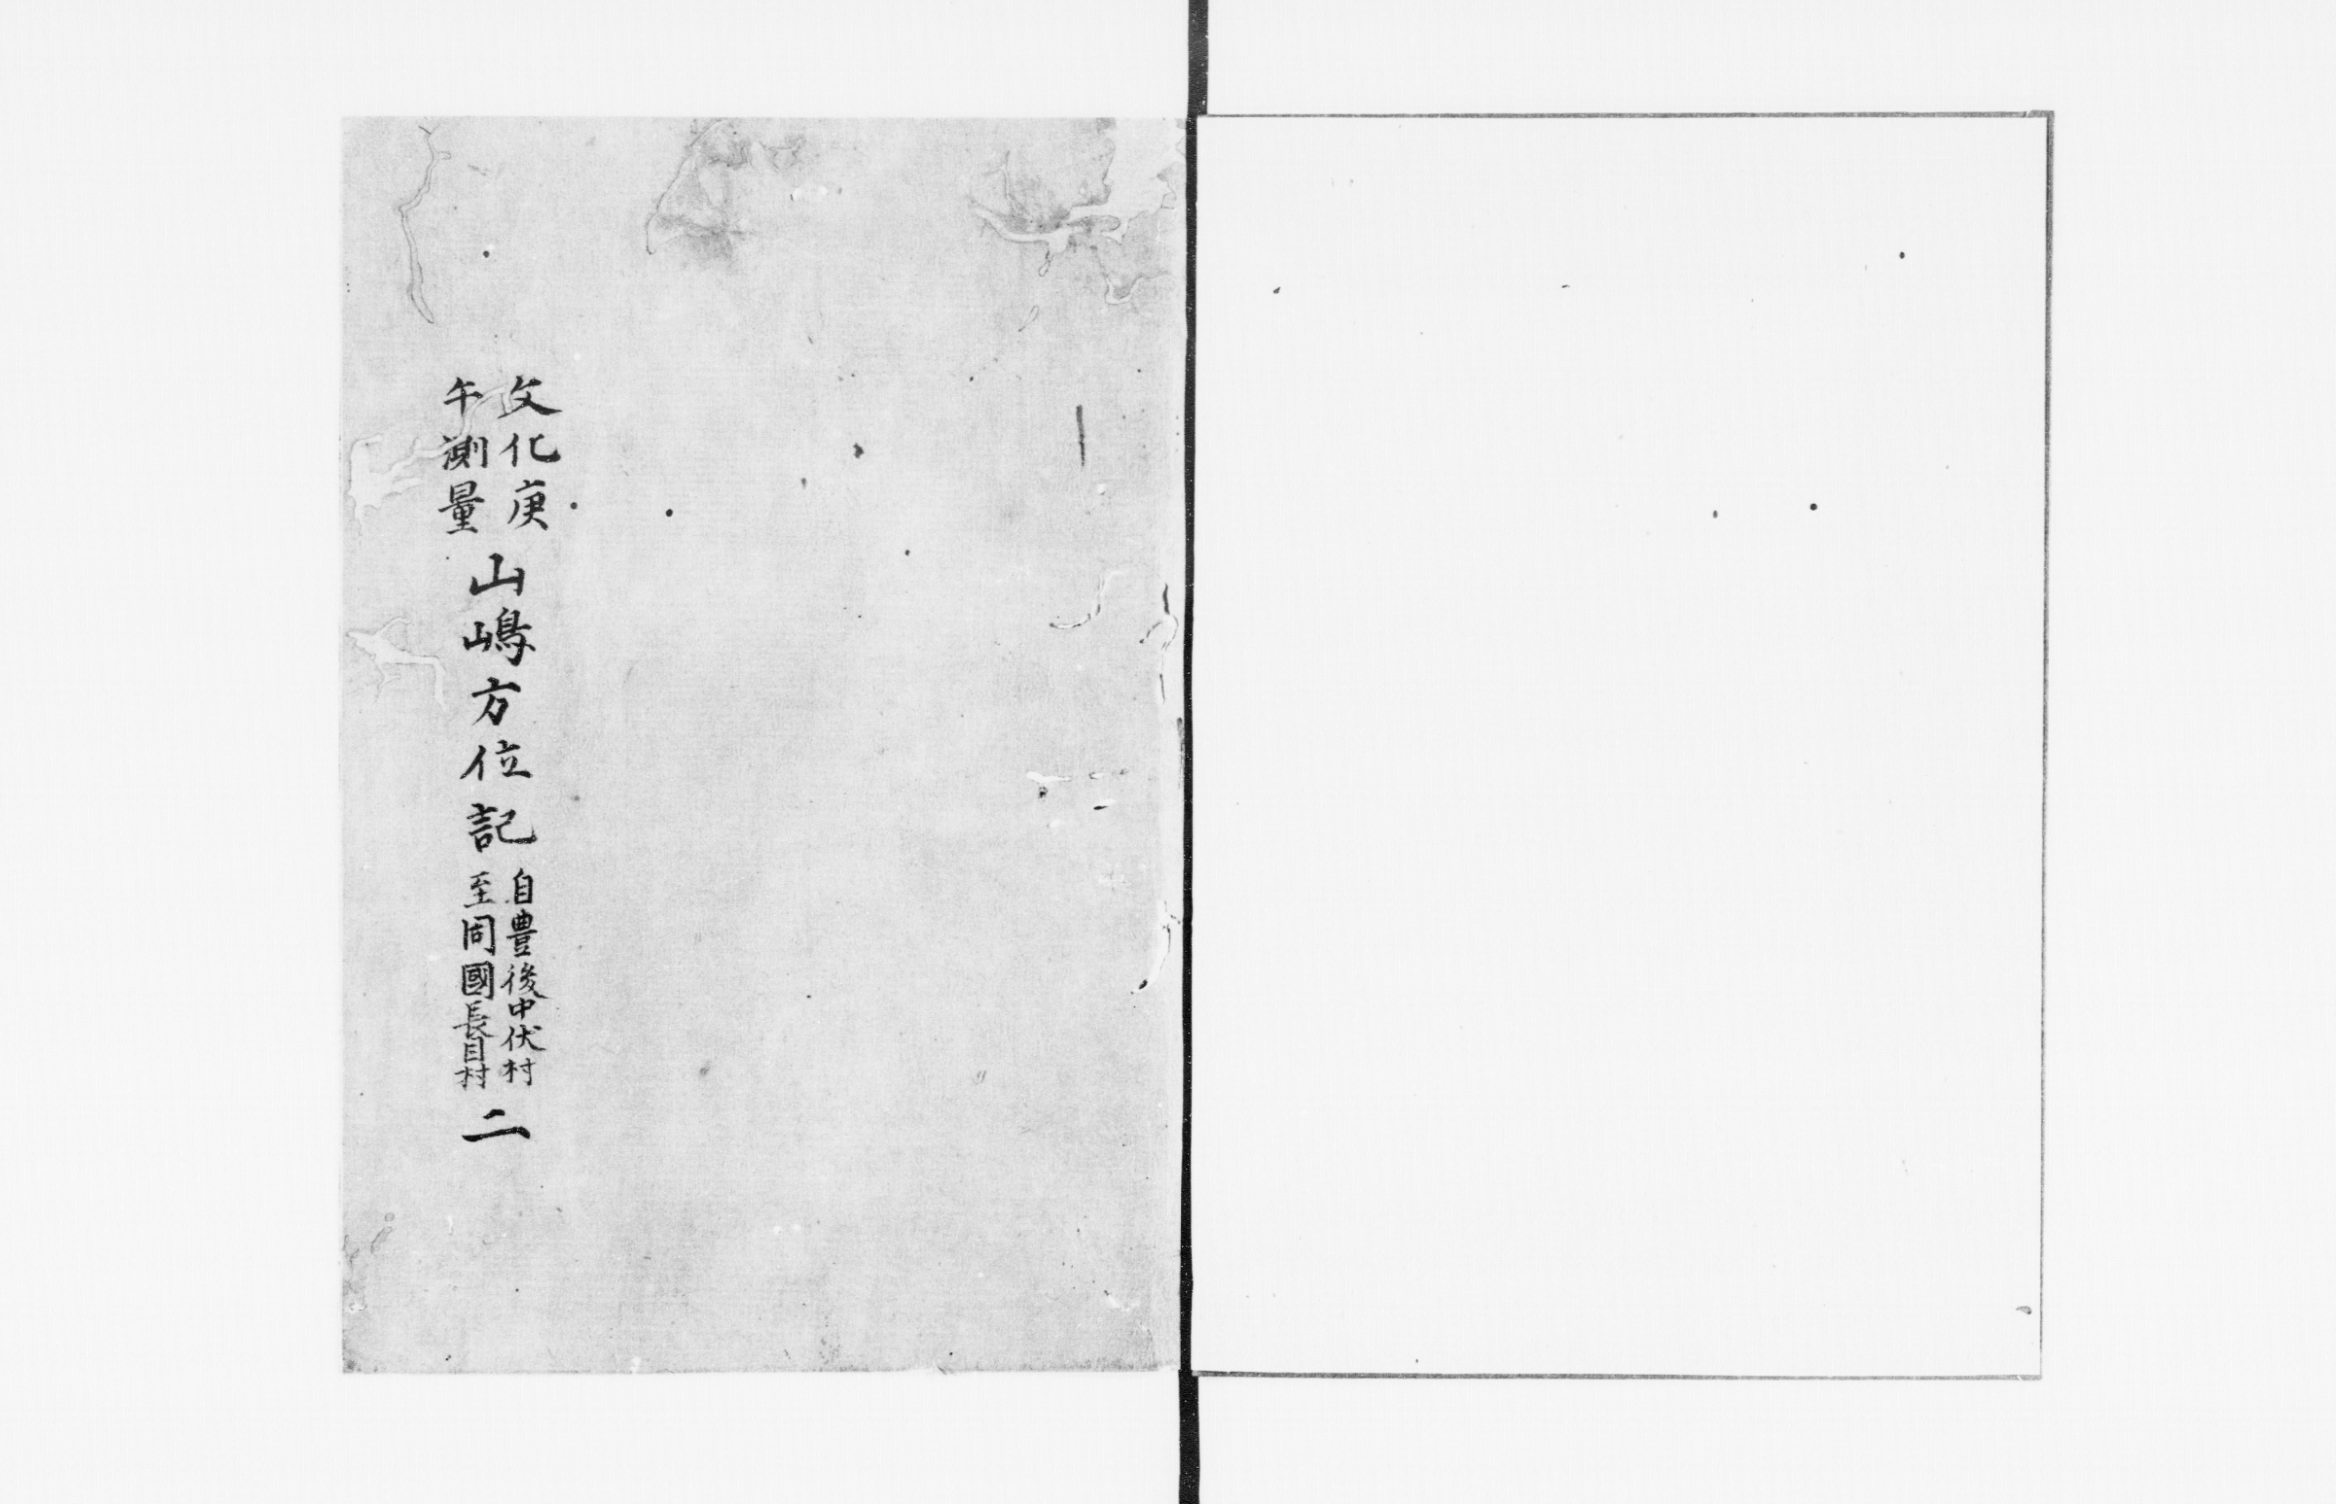 文化庚
午測量
山嶋方位記
自豊後中伏村
至同國長目村
二